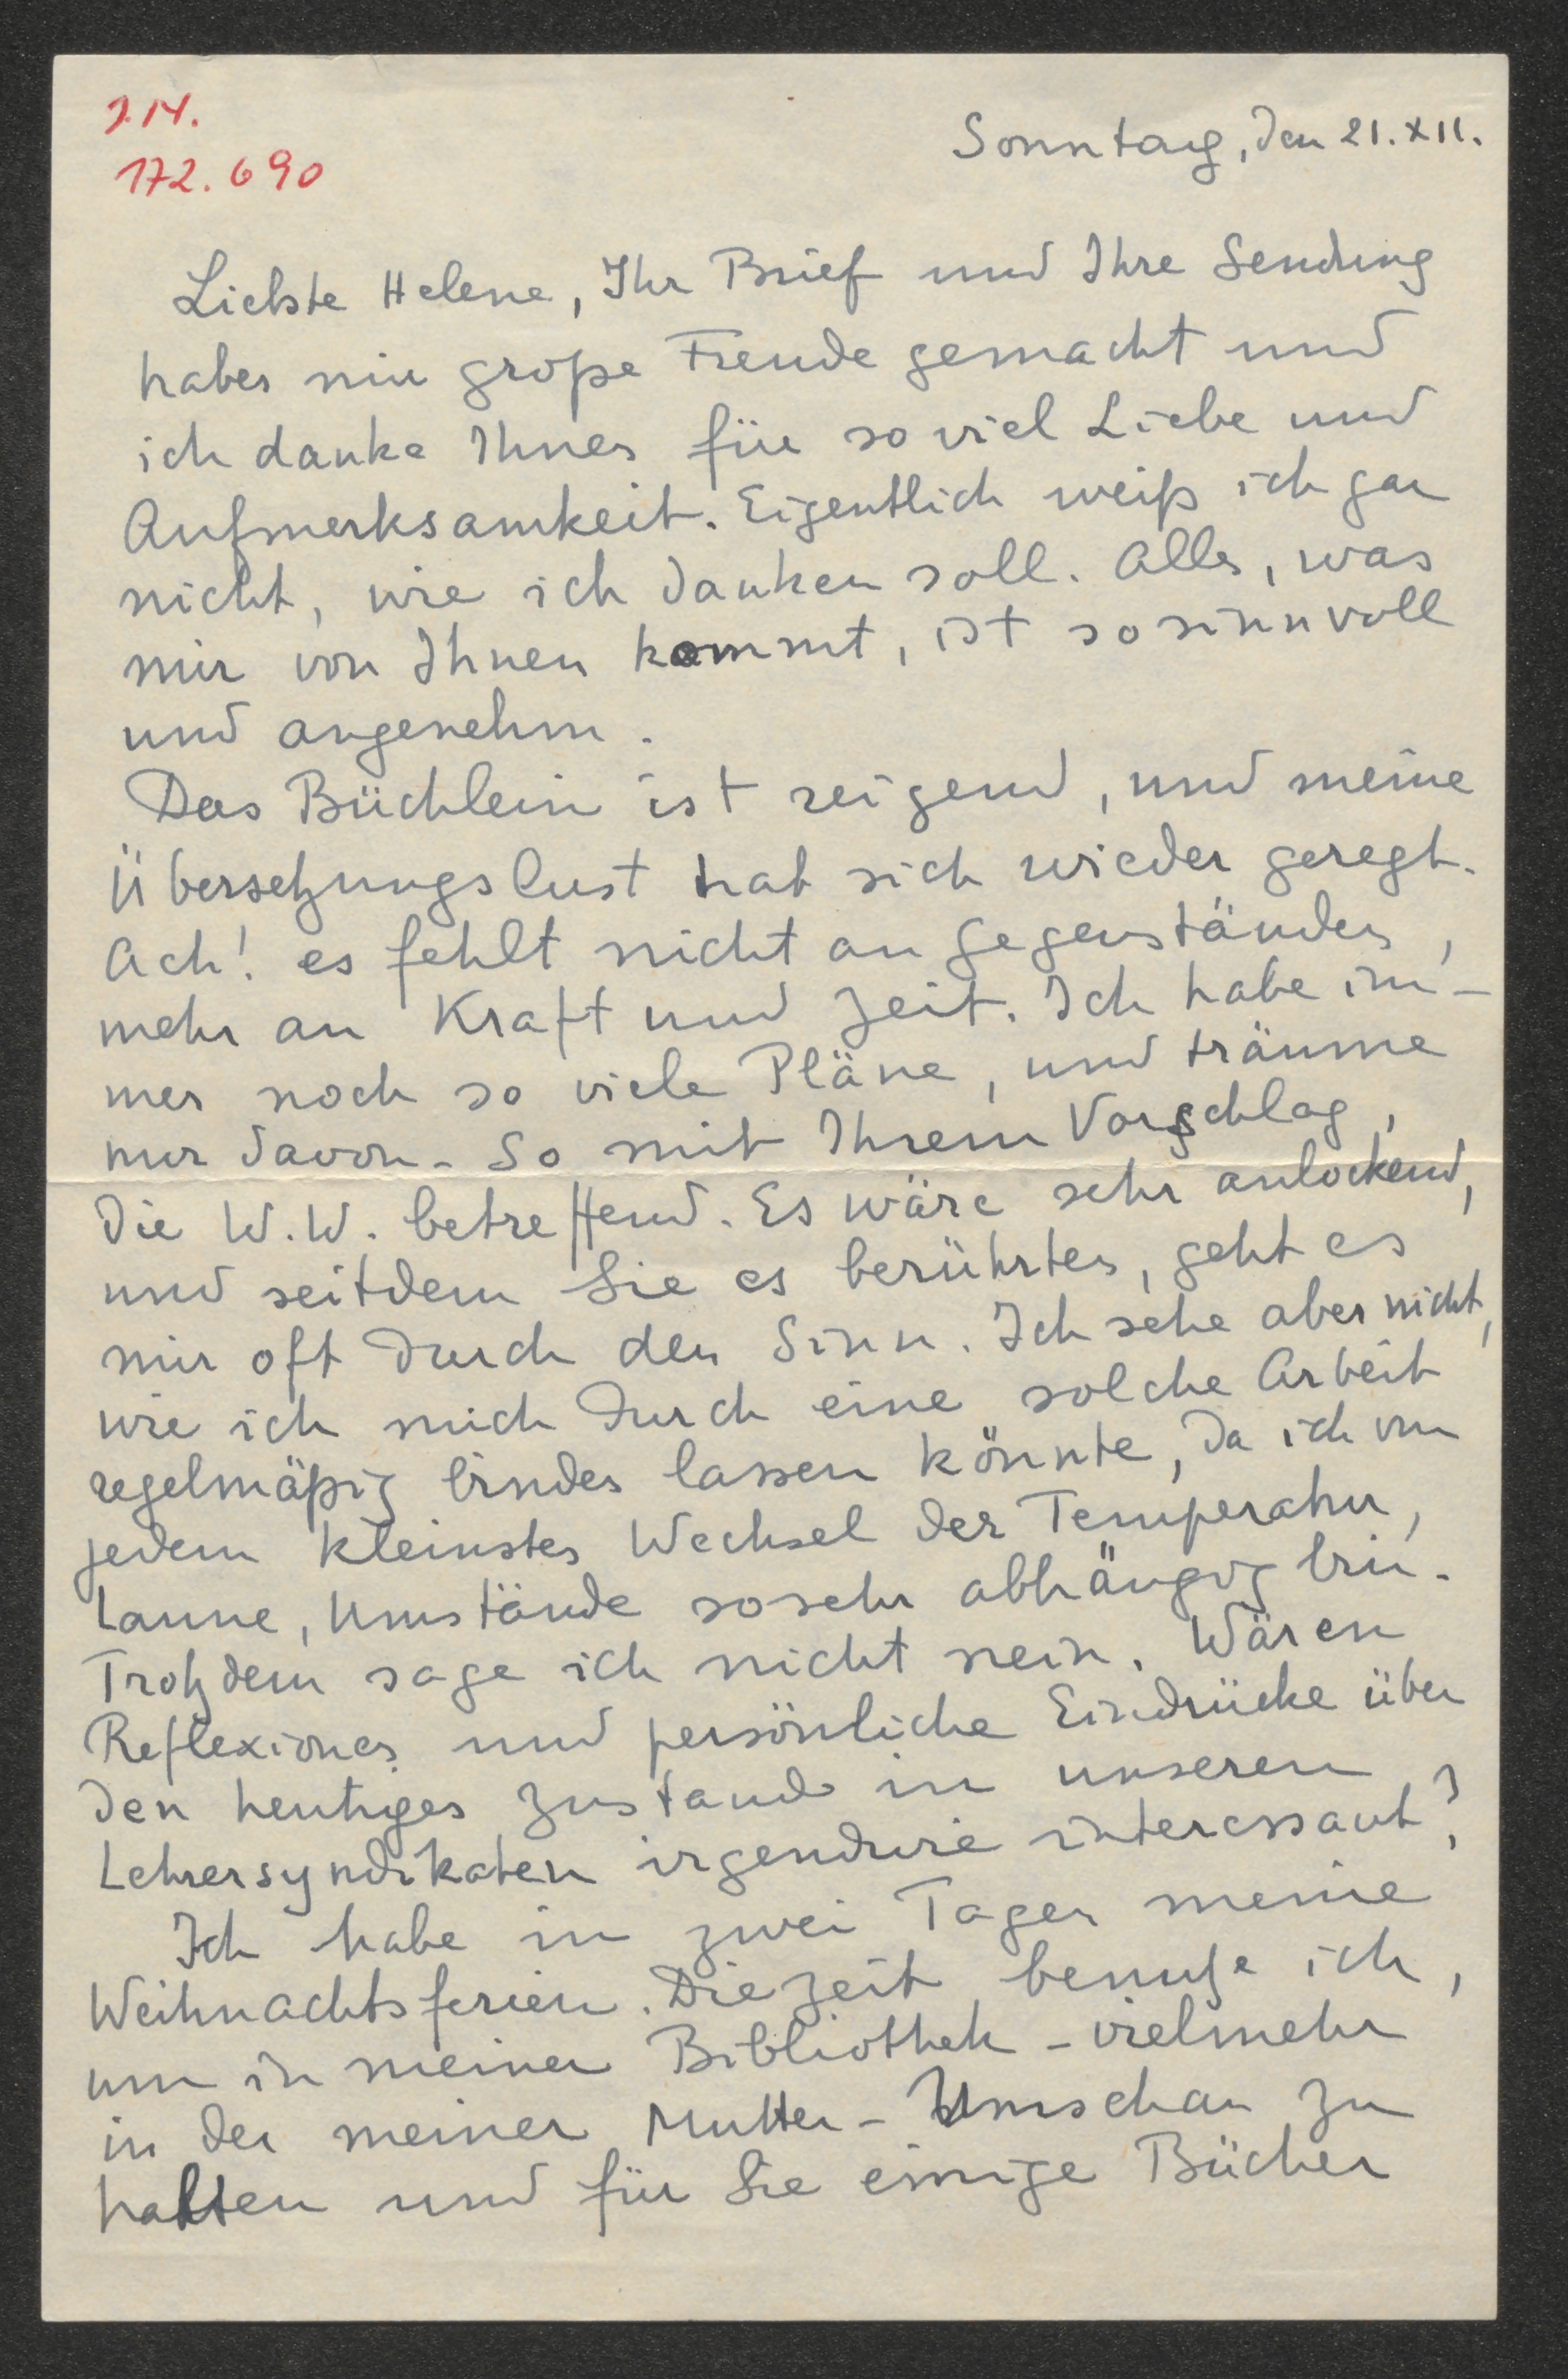 J.N.
172.690
Sonntag, den 21.XII.
Liebste Helene, Ihr Brief und Ihre Sendung
haben mir große Freude gemacht und
ich danke Ihnen für so viel Liebe und
Aufmerksamkeit. Eigentlich weiß ich gar
nicht, wie ich danken soll. Alles, was
mir von Ihnen kommt, ist so sinnvoll
und angenehm.
Das Büchlein ist reizend, und meine
Übersetzungslust hat sich wieder geregt.
Ach! es fehlt nicht an Gegenständen,
mehr an Kraft und Zeit. Ich habe im-
mer noch so viele Pläne, und träume
nur davon. So mit Ihrem Vorschlag,
die W.W. betreffend. Es wäre sehr anlockend,
und seitdem Sie es berührten, geht es
mir oft durch den Sinn. Ich sehe aber nicht,
wie ich mich durch eine solche Arbeit
regelmäßig binden lassen könnte, da ich von
jedem kleinsten Wechsel der Temperatur,
Laune, Umstände sosehr abhängig bin.
Trotzdem sage ich nicht nein. Wären
Reflexionen und persönliche Eindrücke über
den heutigen Zustand in unseren
Lehrersyndikaten irgendwie interessant?
Ich habe in zwei Tagen meine
Weihnachtsferien. Die Zeit benutze ich,
um in meiner Bibliothek - vielmehr
in der meiner Mutter - Umschau zu
halten und für Sie einige Bücher